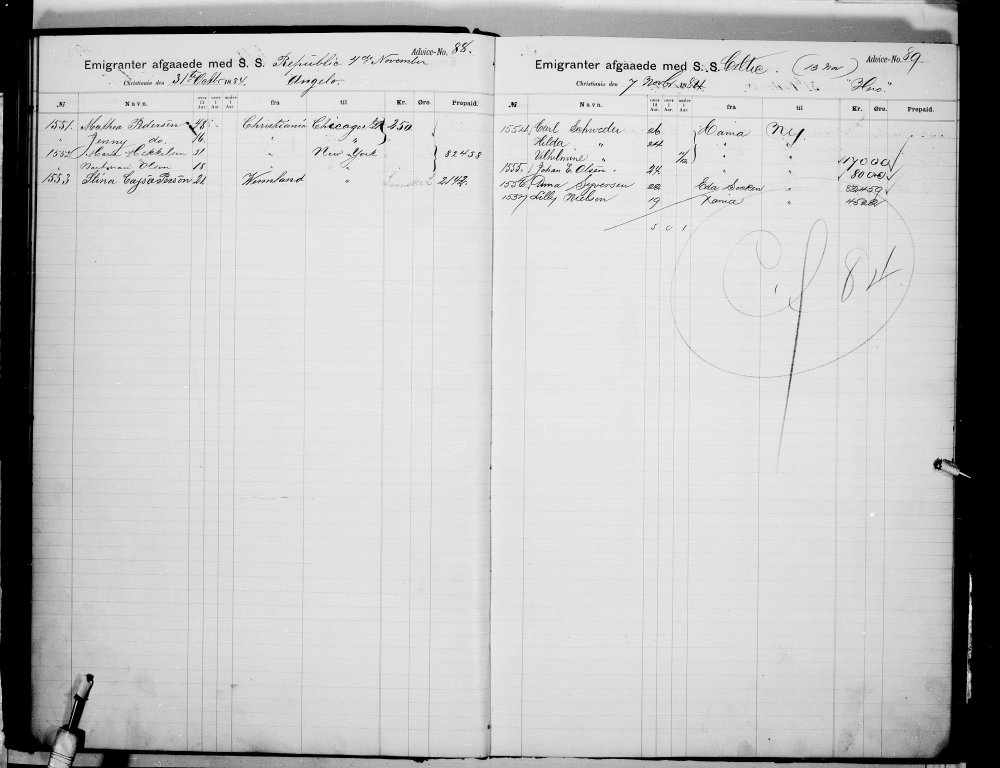 Advice-No. 88.
Emigranter afgaaede med S. S. Republic 4de November
Christiania den 31te Octbr 1884. Angelo.
№ Navn. over 12 Aar. over 1 Aar. under 1 Aar. fra til Kr. Øre. Prepaid.
1551. Mathea Pedersen 48 Christiania Chicago 250
" Jenny do. 16 "
1552 Maren Mikkelsen 31 " New York 82458
Olsen 18 " "
1553 Stina Cajsa Person 21 Wermland " 2142
Advice-No. 89.
Emigranter afgaaede med S. S. Celtic. (13 Nov)
Christiania den 7 Novbr 1884 "Hero"
№ Navn. over 12 Aar. over 1 Aar. under 1 Aar. fra til Kr. Øre. Prepaid.
1554 Carl Schrøder 26 Xania NY
Hilda " 24 " "
Vilhelmine " " " 17000
1555. Johan E. Olsen 24. " " 8000
1556. Anna Syversen 22 Eda Socken " 82459
1557 Lilly Nielsen 19 Xania "
5 0 1
84